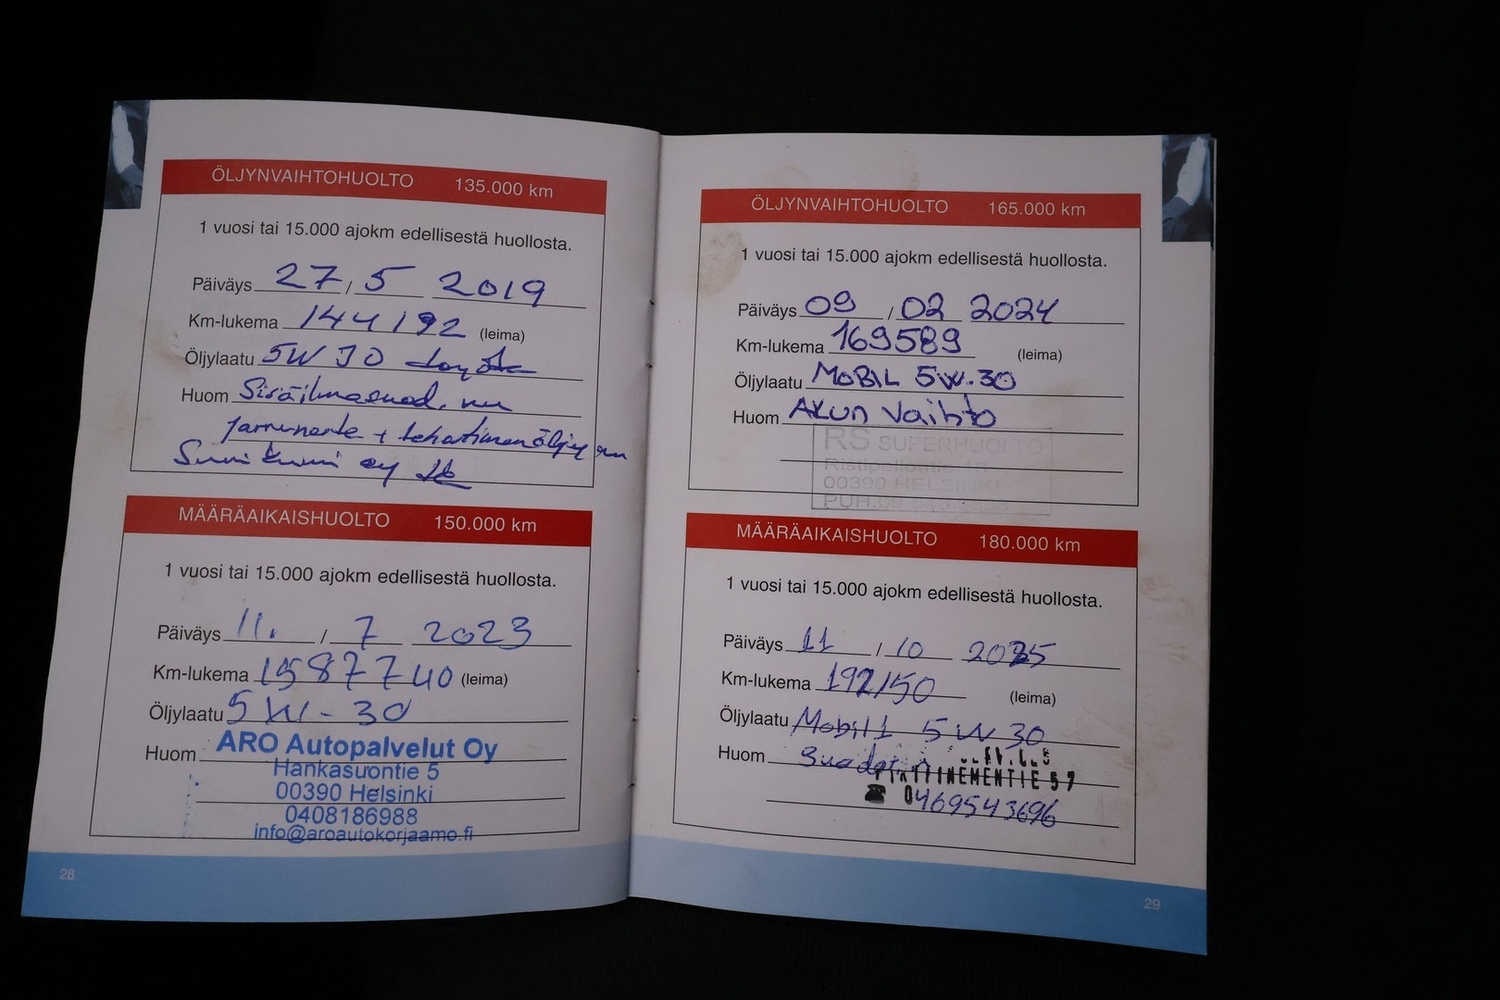 ÖLJYNVAIHTOHUOLTO 135.000 km
1 vuosi tai 15.000 ajokm edellisestä huollosta.
Päiväys 27 / 5 2019
Km-lukema 144192 (leima)
Öljylaatu 5W30
Huom Sisäilmasuod.
jarruneste +
oy
MÄÄRÄAIKAISHUOLTO 150.000 km
1 vuosi tai 15.000 ajokm edellisestä huollosta.
Päiväys 11. / 7 2023
Km-lukema 1587740 (leima)
Öljylaatu 5W-30
Huom ARO Autopalvelut Oy
Hankasuontie 5
00390 Helsinki
0408186988
info@aroautokorjaamo.fi
28
ÖLJYNVAIHTOHUOLTO 165.000 km
1 vuosi tai 15.000 ajokm edellisestä huollosta.
Päiväys 09 / 02 2024
Km-lukema 169589 (leima)
Öljylaatu MOBIL 5W-30
Huom AKUN Vaihto
RS SUPERHUOLTO
00390 HELSINKI
MÄÄRÄAIKAISHUOLTO 180.000 km
1 vuosi tai 15.000 ajokm edellisestä huollosta.
Päiväys 11 / 10 2025
Km-lukema 192150 (leima)
Öljylaatu Mobil 1 5W30
Huom
0469543696
29